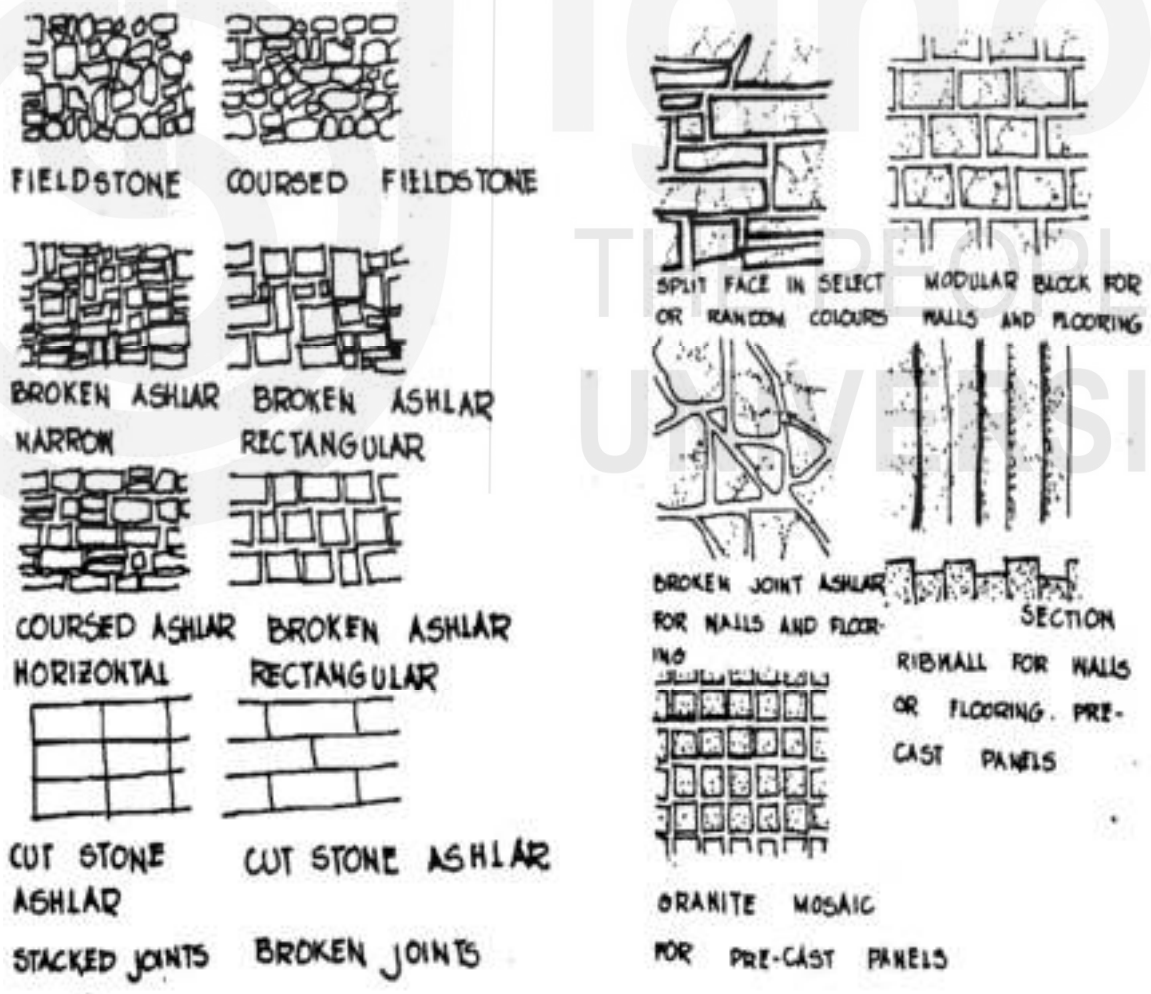 FIELDSTONE
COURSED FIELDSTONE
BROKEN ASHLAR
NARROW
BROKEN ASHLAR
RECTANGULAR
COURSED ASHLAR
HORIZONTAL
BROKEN ASHLAR
RECTANGULAR
CUT STONE
ASHLAR
STACKED JOINTS
CUT STONE ASHLAR
BROKEN JOINTS
SPLIT FACE IN SELECT
OR RANDOM COLOURS
MODULAR BLOCK FOR
WALLS AND FLOORING
BROKEN JOINT ASHLAR
FOR WALLS AND FLOOR-
ING
SECTION
RIBWALL FOR WALLS
OR FLOORING. PRE-
CAST PANELS
GRANITE MOSAIC
FOR PRE-CAST PANELS
THE PEOPL
UNIVERSI